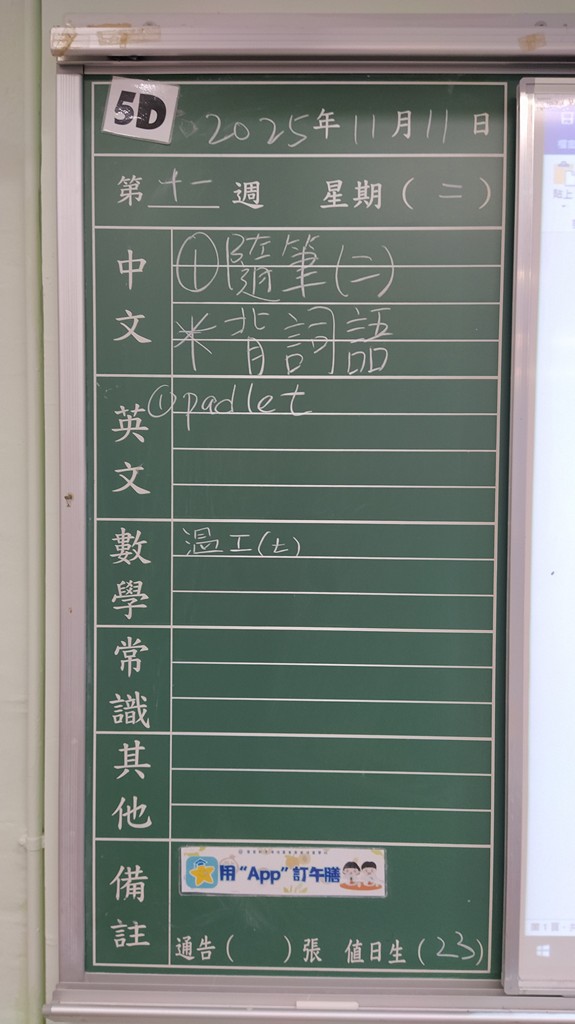 5D
2025年11月11日
第十一週 星期(二)
中文
①隨筆(二)
*背詞語
英文
①padlet
數學
溫工(七)
常識
其他
備註
用“App”訂午膳
通告( )張 值日生(23)